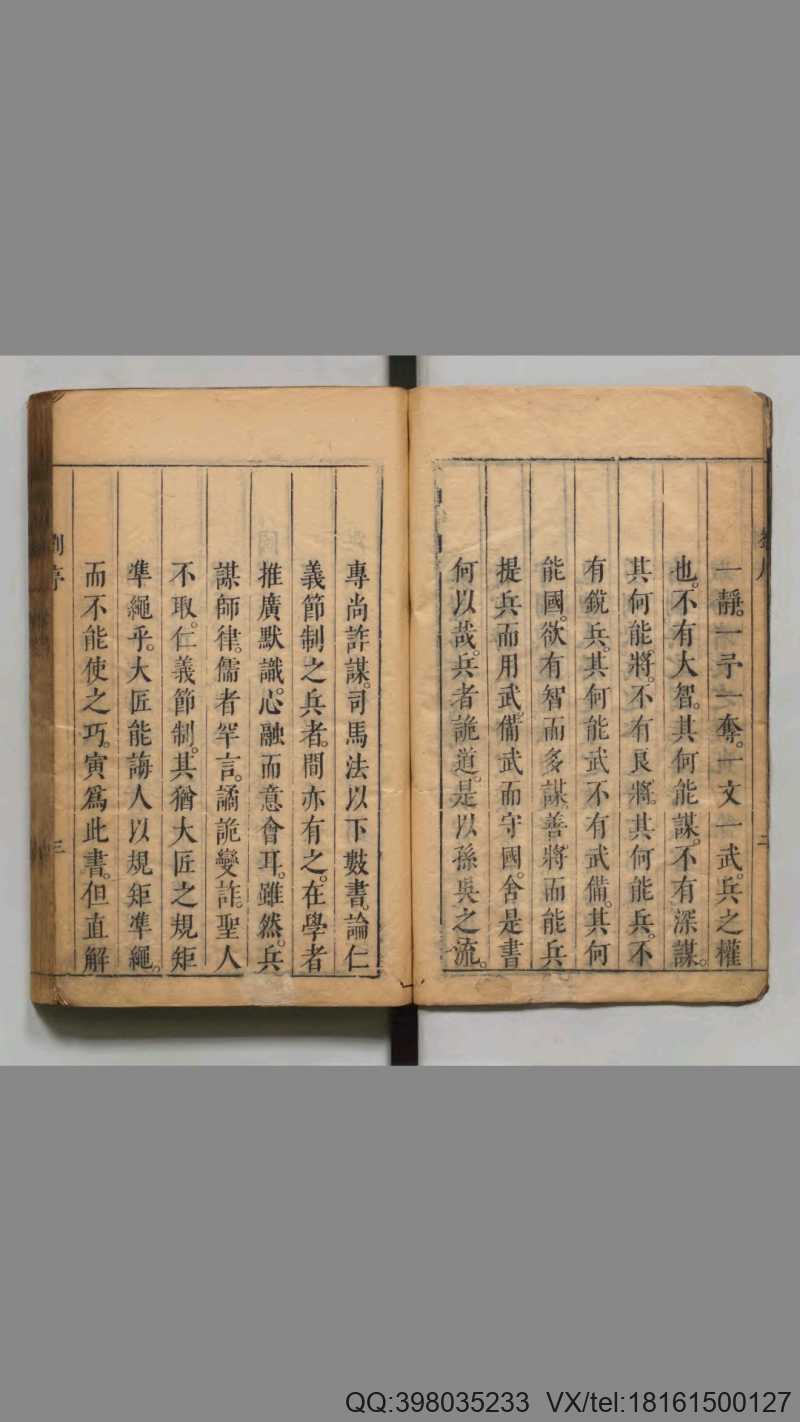 一靜。一予一奪。一文一武。兵之權
也。不有大智。其何能謀。不有深謀。
其何能將。不有良將。其何能兵。不
有銳兵。其何能武。不有武備。其何
能國。欲有智而多謀。善將而能兵。
提兵而用武。備武而守國。舍是書
何以哉。兵者詭道。是以孫吳之流。
二
專尚詐謀。司馬法以下數書。論仁
義節制之兵者。間亦有之。在學者
推廣默識。心融而意會耳。雖然。兵
謀師律。儒者罕言。譎詭變詐。聖人
不取。仁義節制。其猶大匠之規矩
準繩乎。大匠能誨人以規矩準繩。
而不能使之巧。寅爲此書。但直解
三
QQ:398035233 VX/tel:18161500127